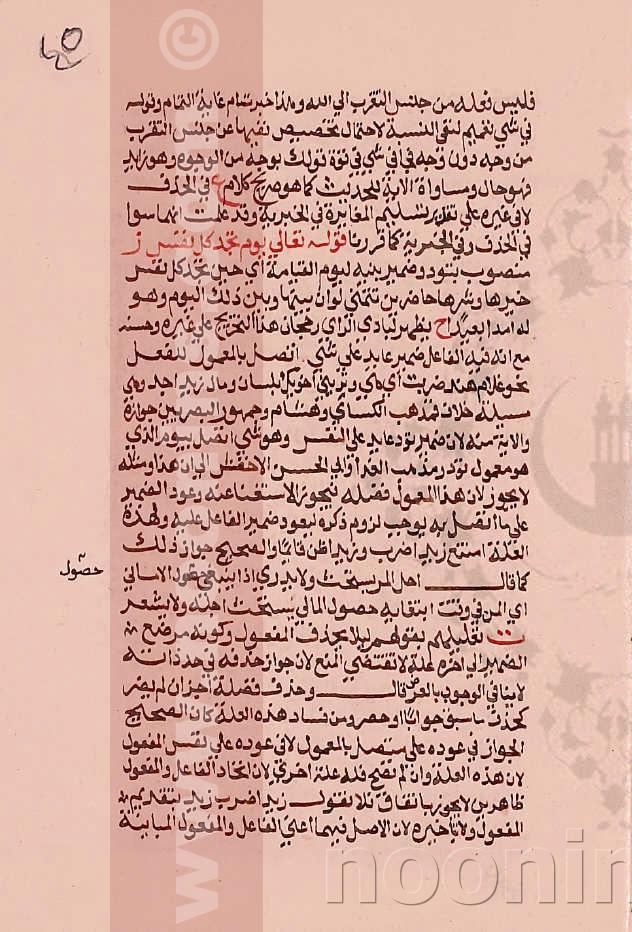 فليس فعله من جنس التقرب الي الله وهذا خبر تمام غاية التمام وقوله
في شي تتميم لنفي النسبة لاحتمال تخصيص نفيها عن جنس التقرب
من وجه دون وجه فجا في شي في قوة قولك بوجه من الوجوه وهو زايد
فهو حال ومساواة الاية للحديث كما هو صريح كلام ع في الحذف
لا في غيره علي تقدير تسليم المغايرة في الخبرية وقد علمت انهما سوا
في الحذف وفي الخبرية كما قررنا قوله تعالي يوم تجد كل نفس ز
منصوب بتود وضمير بينه ليوم القيامة اي حين تجد كل نفس
خيرها وشرها حاضرين تتمني لو ان بينها وبين ذلك اليوم وهوله
امدا بعيدا ح يظهر لبادي الراي رجحان هذا التخريج علي غيره وحسنه
مع انه فيه الفاعل ضمير عايد علي شي اتصل بالمعمول للفعل
نحو غلام هند ضربت اي هي وثوبي اخويك يلبسان ومال زيد اخذ وهي
مسيلة خلاف فمذهب الكساي وهشام وجمهور البصريين جوازه
والاية منه لان ضمير تود عايد علي النفس وهو شي اتصل بيوم الذي
هو معمول تود ومذهب الفرا وابي الحسن الاخفش الي ان هذا ومثله
لا يجوز لان هذا المعمول فضلة فيجوز الاستغنا عنه وعود الضمير
علي ما اتصل به يوجب لزوم ذكره ليعود ضمير الفاعل عليه ولهذه
العلة امتنع زيدا ضرب وزيدا ظن قايما والصحيح جواز ذلك
كما قال اجل المر يستحث ولا يدري اذا يبتغي حصول الاماني
حصول
اي المر في وقت ابتغايه حصول المالي يستحث اجله ولا يشعر
ت تعليلهم بقولهم ليلا يحذف المفعول وكونه مرجع
الضمير الي اخره علة لا تقتضي المنع لان جواز حذفه في حد ذاته
لا ينافي الوجوب بالعرض قال وحذف فضلة اجز ان لم يضر
كحذف ما سيق جوابا او حصر ومن فساد هذه العلة كان الصحيح
الجواز في عوده علي متصل بالمعمول لا في عوده علي نفس المعمول
لان هذه العلة وان لم تصح فله علة اخري لان اتحاد الفاعل والمفعول
ظاهرين لا يجوز باتفاق فلا تقول زيد اضرب زيد بتقديم
المفعول ولا تاخيره لان الاصل فيهما اعني الفاعل والمفعول المباينة
www.
©
noonin